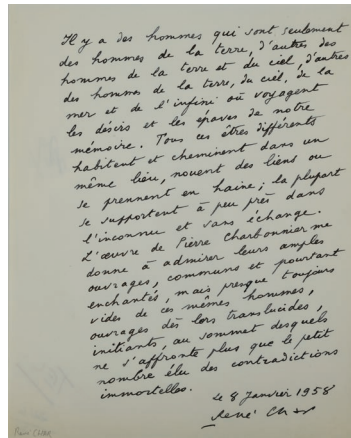 Il y a des hommes qui sont seulement
des hommes de la terre, d'autres des
hommes de la terre et du ciel, d'autres
des hommes de la terre, du ciel, de la
mer et de l'infini où voyagent
les désirs et les épaves de notre
mémoire. Tous ces êtres différents
habitent et cheminent dans un
même lieu, nouent des liens ou
se prennent en haine ; la plupart
se supportent à peu près dans
l'inconnu et sans échange.
L'œuvre de Pierre Charbonnier me
donne à admirer leurs amples
ouvrages, communs et pourtant
enchantés, mais presque toujours
vides de ces mêmes hommes,
ouvrages dès lors translucides,
initiants, au sommet desquels
ne s'affronte plus que le petit
nombre élu des contradictions
immortelles.
Le 8 Janvier 1958
René Char